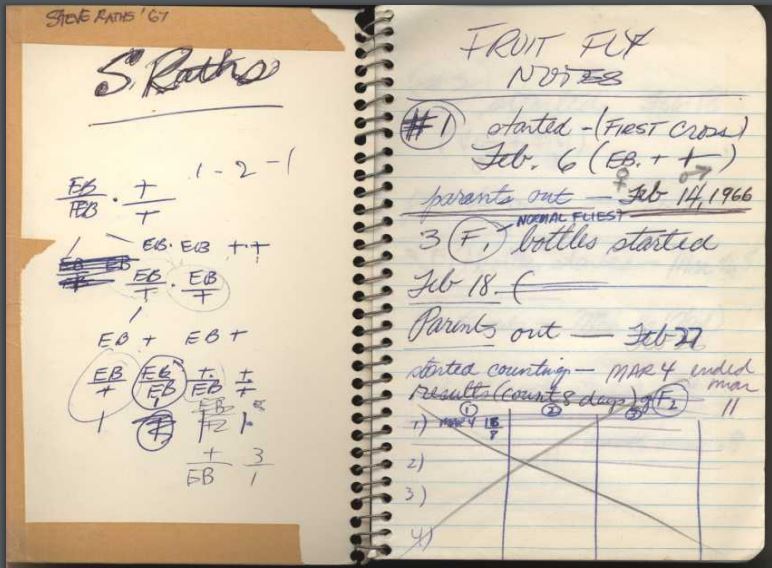 STEVE RATHS '67
S. Raths
1 - 2 - 1
EB/EB · +/+
EB · EB + ·+
EB/+ · EB/+
EB + EB +
EB/+ EB/EB +/EB +/+
+/EB 3/1
FRUIT FLY
NOTES
#1 started - (FIRST CROSS)
Feb. 6 (EB. + +)
♀ ♂
parents out — Feb 14, 1966
NORMAL FLIES
3 F1 bottles started
Feb 18. (
Parents out — Feb 27
started counting - MAR 4 ended
mar
results (count 8 days) of F2 11
① ② ③
1) MAR 4
2)
3)
4)